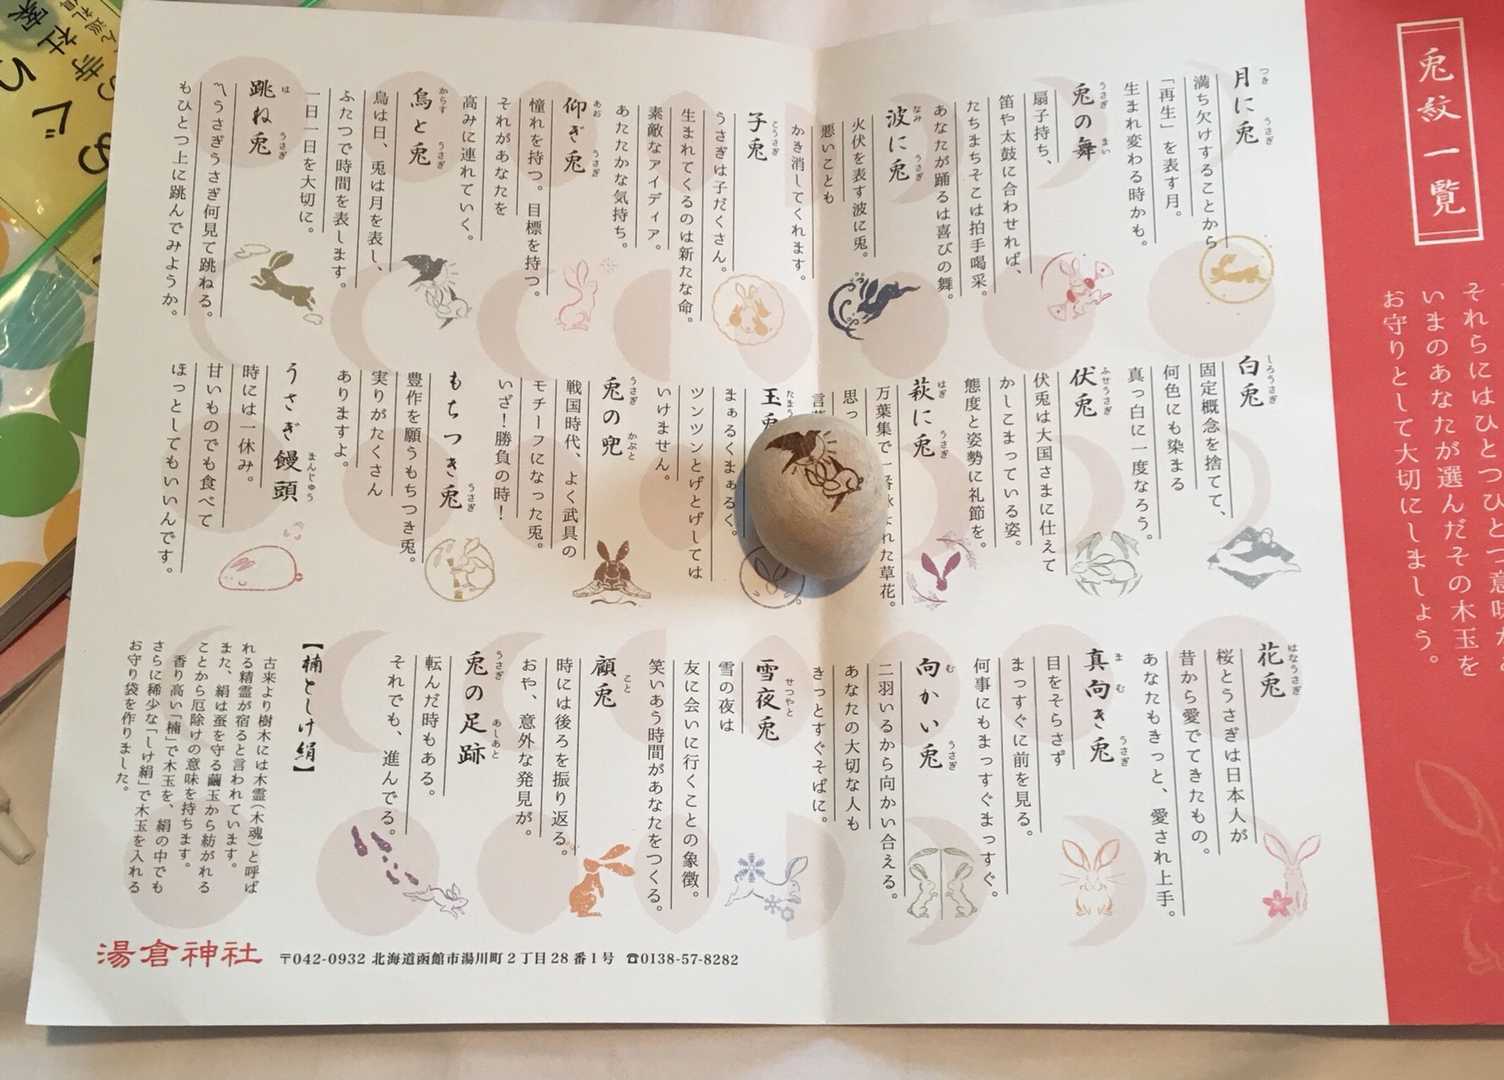 兎紋一覧
それらにはひとつひとつ意味が
いまのあなたが選んだその木玉を
お守りとして大切にしましょう。
月に兎
つき うさぎ
満ち欠けすることから
「再生」を表す月。
生まれ変わる時かも。
兎の舞
うさぎ まい
扇子持ち、
笛や太鼓に合わせれば、
たちまちそこは拍手喝采。
あなたが踊るは喜びの舞。
波に兎
なみ うさぎ
火伏を表す波に兎。
悪いことも
かき消してくれます。
子兎
こうさぎ
うさぎは子だくさん。
生まれてくるのは新たな命。
素敵なアイディア。
あたたかな気持ち。
仰ぎ兎
あお うさぎ
憧れを持つ。目標を持つ。
それがあなたを
高みに連れていく。
烏と兎
からす うさぎ
烏は日、兎は月を表し、
ふたつで時間を表します。
一日一日を大切に。
跳ね兎
は うさぎ
〽うさぎうさぎ何見て跳ねる。
もひとつ上に跳んでみようか。
白兎
しろうさぎ
固定概念を捨てて、
何色にも染まる
真っ白に一度なろう。
伏兎
ふせうさぎ
伏兎は大国さまに仕えて
かしこまっている姿。
態度と姿勢に礼節を。
萩に兎
はぎ うさぎ
万葉集で一番詠まれた草花。
思っ
言葉
玉兎
たまう
まぁるくまぁるく。
ツンツンとげとげしては
いけません。
兎の兜
うさぎ かぶと
戦国時代、よく武具の
モチーフになった兎。
いざ！勝負の時！
もちつき兎
うさぎ
豊作を願うもちつき兎。
実りがたくさん
ありますよ。
うさぎ饅頭
まんじゅう
時には一休み。
甘いものでも食べて
ほっとしてもいいんです。
花兎
はなうさぎ
桜とうさぎは日本人が
昔から愛でてきたもの。
あなたもきっと、愛され上手。
真向き兎
ま む うさぎ
目をそらさず
まっすぐに前を見る。
何事にもまっすぐまっすぐ。
向かい兎
む うさぎ
二羽いるから向かい合える。
あなたの大切な人も
きっとすぐそばに。
雪夜兎
せつやと
雪の夜は
友に会いに行くことの象徴。
笑いあう時間があなたをつくる。
顧兎
こと
時には後ろを振り返る。
おや、意外な発見が。
兎の足跡
うさぎ あしあと
転んだ時もある。
それでも、進んでる。
【楠としけ絹】
古来より樹木には木霊（木魂）と呼ば
れる精霊が宿ると言われています。
また、絹は蚕を守る繭玉から紡がれる
ことから厄除けの意味を持ちます。
香り高い「楠」で木玉を、絹の中でも
さらに稀少な「しけ絹」で木玉を入れる
お守り袋を作りました。
湯倉神社 〒042-0932 北海道函館市湯川町2丁目28番1号 ☎0138-57-8282